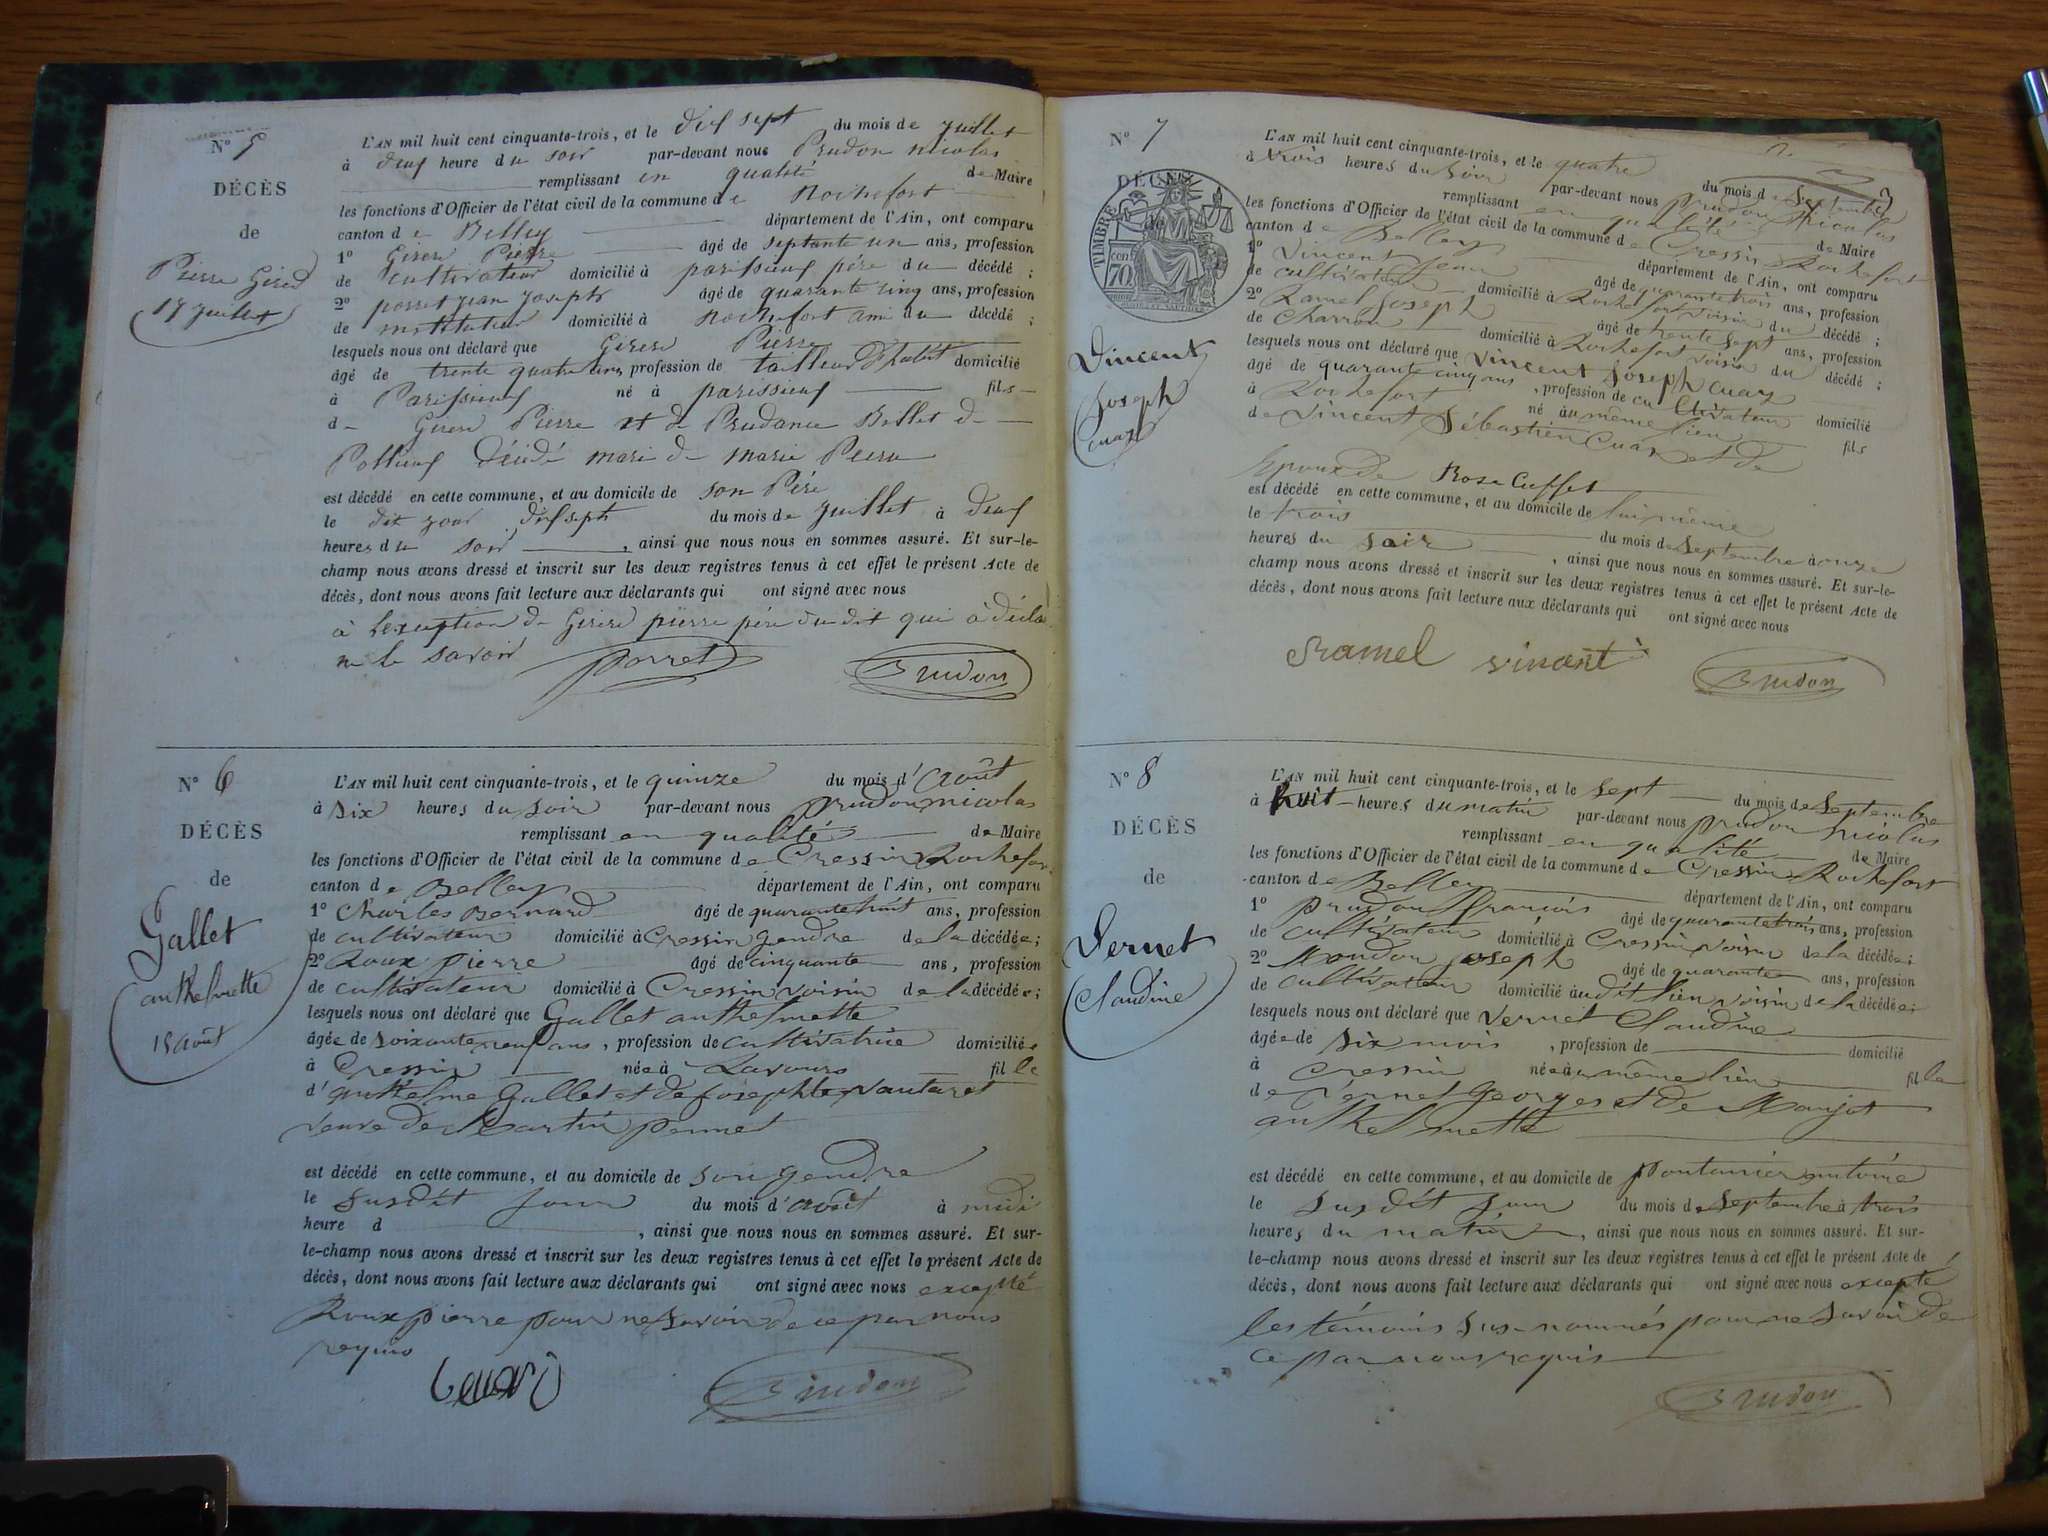 N° 5
DÉCÈS
de
Pierre Girerd
17 juillet
L'AN mil huit cent cinquante-trois, et le dix sept du mois de juillet
à deux heure du soir par-devant nous Prudon nicolas
remplissant en qualité de Maire
les fonctions d'Officier de l'état civil de la commune de Rochefort
canton de Belley département de l'Ain, ont comparu
1° Girerd Pierre âgé de septante un ans, profession
de cultivateur domicilié à parissieux père du décédé ;
2° porret jean joseph âgé de quarante cinq ans, profession
de instituteur domicilié à Rochefort ami du décédé ;
lesquels nous ont déclaré que Girerd Pierre
âgé de trente quatre ans, profession de tailleur d'habit domicilié
à Parissieux né à parissieux fils
de Girerd Pierre et de Prudance Bellet de
Pollieux décédé mari de marie
est décédé en cette commune, et au domicile de son Père
le dit jour dix sept du mois de juillet à deux
heures du soir , ainsi que nous nous en sommes assuré. Et sur-le-
champ nous avons dressé et inscrit sur les deux registres tenus à cet effet le présent Acte de
décès, dont nous avons fait lecture aux déclarants qui ont signé avec nous
à lexception de Girerd pierre père du dit qui à décla
ne le savoir porret Prudon
N° 6
DÉCÈS
de
Gallet
anthelmette
15 août
L'AN mil huit cent cinquante-trois, et le quinze du mois d'août
à six heures du soir par-devant nous prudon nicolas
remplissant en qualité de Maire
les fonctions d'Officier de l'état civil de la commune de Cressin Rochefort
canton de Belley département de l'Ain, ont comparu
1° Charles Bernard âgé de quarante huit ans, profession
de cultivateur domicilié à Cressin gendre de la décédée;
2° Roux pierre âgé de cinquante ans, profession
de cultivateur domicilié à Cressin voisin de la décédée;
lesquels nous ont déclaré que Gallet anthelmette
âgée de soixante neuf ans, profession de cultivatrice domiciliée
à Cressin née à Lavours fille
d'anthelme Gallet et de josephte vautaret
veuve de Martin pernet
est décédé en cette commune, et au domicile de son gendre
le susdit jour du mois d'août à midi
heure d , ainsi que nous nous en sommes assuré. Et sur-
le-champ nous avons dressé et inscrit sur les deux registres tenus à cet effet le présent Acte de
décès, dont nous avons fait lecture aux déclarants qui ont signé avec nous excepté
Roux pierre pour ne savoir de ce par nous
requis
Prudon
N° 7
DÉCÈS
TIMBRE
70
Vincent
Joseph
cuaz
L'AN mil huit cent cinquante-trois, et le quatre du mois de septembre
à trois heures du soir par-devant nous prudon Nicolas
remplissant en qualité de Maire
les fonctions d'Officier de l'état civil de la commune de Cressin Rochefort
canton de Belley département de l'Ain, ont comparu
1° Vincent Jean âgé de quarante trois ans, profession
de cultivateur domicilié à Rochefort voisin du décédé ;
2° Ramel Joseph âgé de trente sept ans, profession
de Charron domicilié à Rochefort voisin du décédé ;
lesquels nous ont déclaré que Vincent Joseph cuaz
âgé de quarante cinq ans, profession de cultivateur domicilié
à Rochefort né au même lieu fils
de Vincent Sébastien Cuaz et de
Epoux de Rose Cuffet
est décédé en cette commune, et au domicile de lui même
le trois du mois de septembre à onze
heures du soir , ainsi que nous nous en sommes assuré. Et sur-le-
champ nous avons dressé et inscrit sur les deux registres tenus à cet effet le présent Acte de
décès, dont nous avons fait lecture aux déclarants qui ont signé avec nous
Ramel vincent Prudon
N° 8
DÉCÈS
de
Vernet
Claudine
L'AN mil huit cent cinquante-trois, et le sept du mois de septembre
à huit heures du matin par-devant nous prudon nicolas
remplissant en qualité de Maire
les fonctions d'Officier de l'état civil de la commune de Cressin Rochefort
canton de Belley département de l'Ain, ont comparu
1° prudon françois âgé de quarante trois ans, profession
de cultivateur domicilié à Cressin voisin de la décédée;
2° Mondon joseph âgé de quarante ans, profession
de cultivateur domicilié audit lieu voisin de la décédée;
lesquels nous ont déclaré que Vernet Claudine
âgée de six mois , profession de domicilié
à Cressin née au même lieu fille
de Vernet Georges et de Manjot
anthelmette
est décédé en cette commune, et au domicile de pontannier antoine
le susdit jour du mois de septembre à trois
heures du matin, ainsi que nous nous en sommes assuré. Et sur-
le-champ nous avons dressé et inscrit sur les deux registres tenus à cet effet le présent Acte de
décès, dont nous avons fait lecture aux déclarants qui ont signé avec nous excepté
les témoins sus-nommés pour ne savoir de
ce par nous requis
Prudon